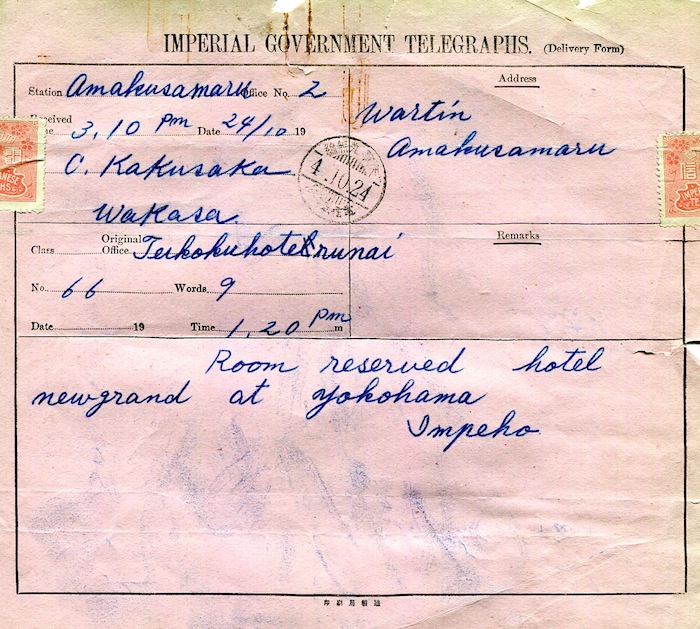 IMPERIAL GOVERNMENT TELEGRAPHS. (Delivery Form)
Station Amakusamaru Office No. 2
Address
Received
3.10 pm Date 24/10 19
Wartin
Amakusamaru
C. Kakusaka
4.10.24
Wakasa
Class Original Office Teikokuhotel
runai
Remarks
No. 66 Words 9
Date 19 Time 1,20 pm m
Room reserved hotel
newgrand at yokohama
Impeho
印刷局報通